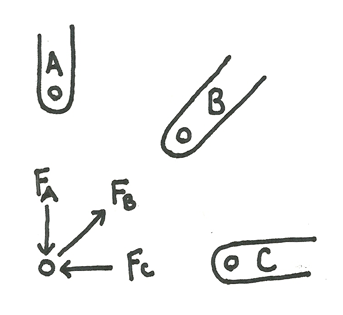 A
B
F_A
F_B
F_C
C